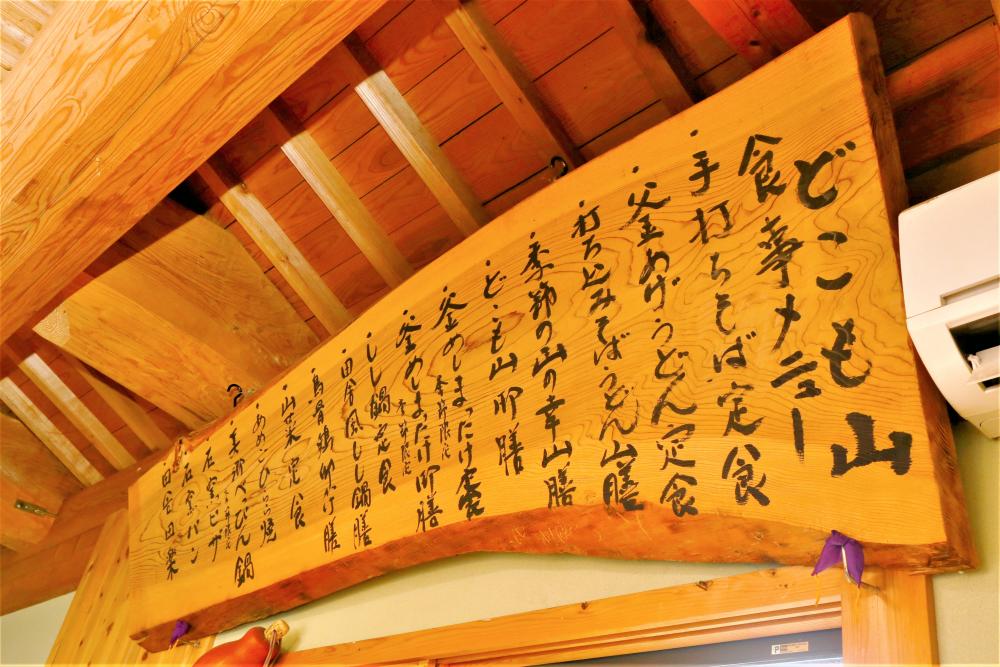 どこも山
食事メニュー
・手打ちそば定食
・釜あげうどん定食
・打ち込みそばうどん山膳
・季節の山の幸山膳
・どこも山御膳
・釜めしまったけ 季節限定
・釜めしまつたけ御膳 季節限定
・しし鍋定食
・田舎風しし鍋膳
・烏骨鶏卵付膳
・山菜定食
・あめごひらら焼
・美郷べっぴん鍋
・石窯ピザ
・石窯パン
・田舎田楽